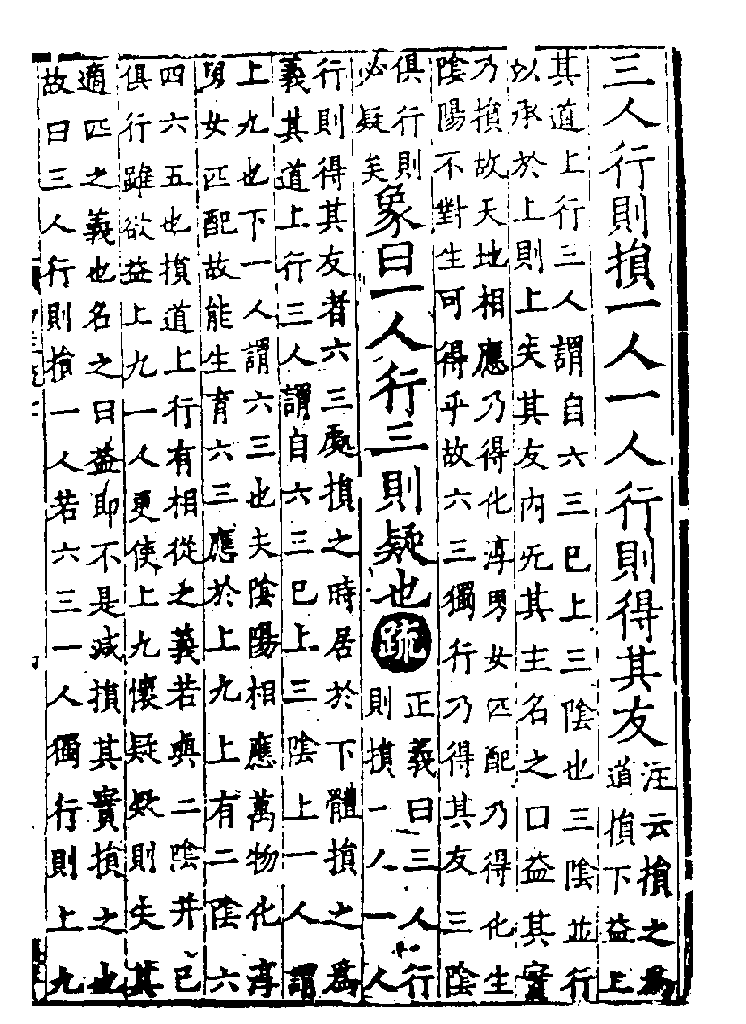 三人行則損一人一人行則得其友
注云損之為
道損下益上
其道上行三人謂自六三巳上三陰也三陰並行
以承於上則上失其友内无其主名之曰益其實
乃損故天地相應乃得化淳男女匹配乃得化生
陰陽不對生可得乎故六三獨行乃得其友三陰
俱行則
必疑矣
象曰一人行三則疑也疏
正義曰三人行
則損一人一人
行則得其友者六三處損之時居於下體損之為
義其道上行三人謂自六三巳上三陰上一人謂
上九也下一人謂六三也夫陰陽相應萬物化淳
男女匹配故能生育六三應於上九上有二陰六
四六五也損道上行有相從之義若與二陰并已
俱行雖欲益上九一人更使上九懷疑疑則失其
適匹之義也名之曰益即不是減損其實損之也
故曰三人行則損一人若六三一人獨行則上九